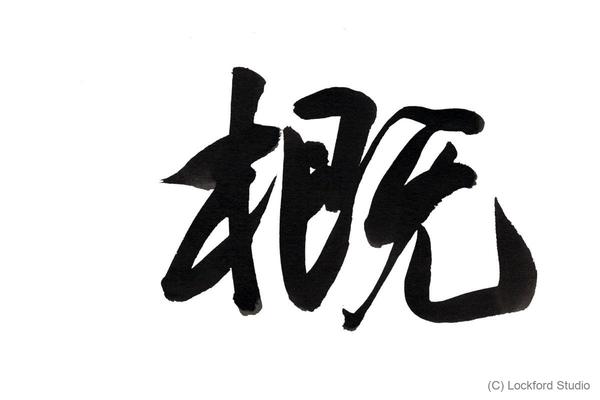 概
(C) Lockford Studio